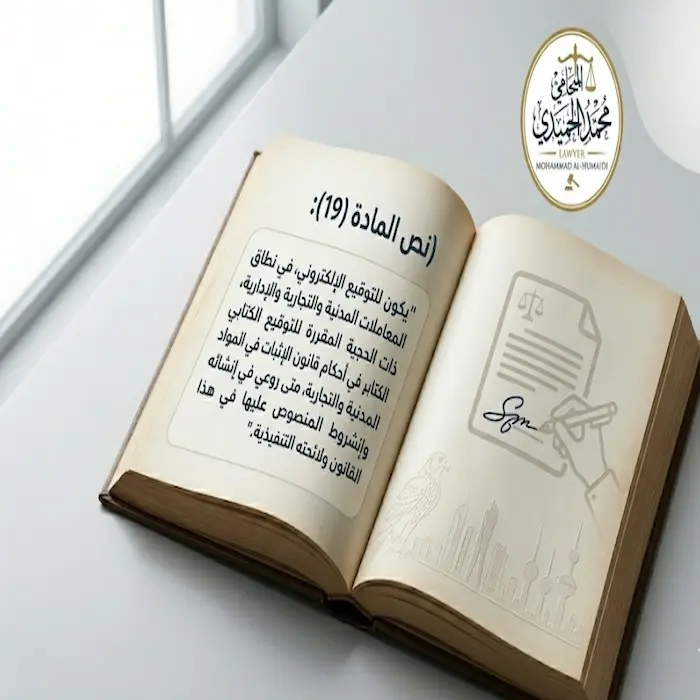 المحامي
محمد الحميدي
LAWYER
MOHAMMAD AL-HUMAIDI
(نص المادة (19):
"يكون للتوقيع الإلكتروني، في نطاق
المعاملات المدنية والتجارية والإدارية،
ذات الحجية المقررة للتوقيع الكتابي
الكتابر في أحكام قانون الإثبات في المواد
المدنية والتجارية، متى روعي في إنشائه
وإنشروط المنصوص عليها في هذا
القانون ولائحته التنفيذية."